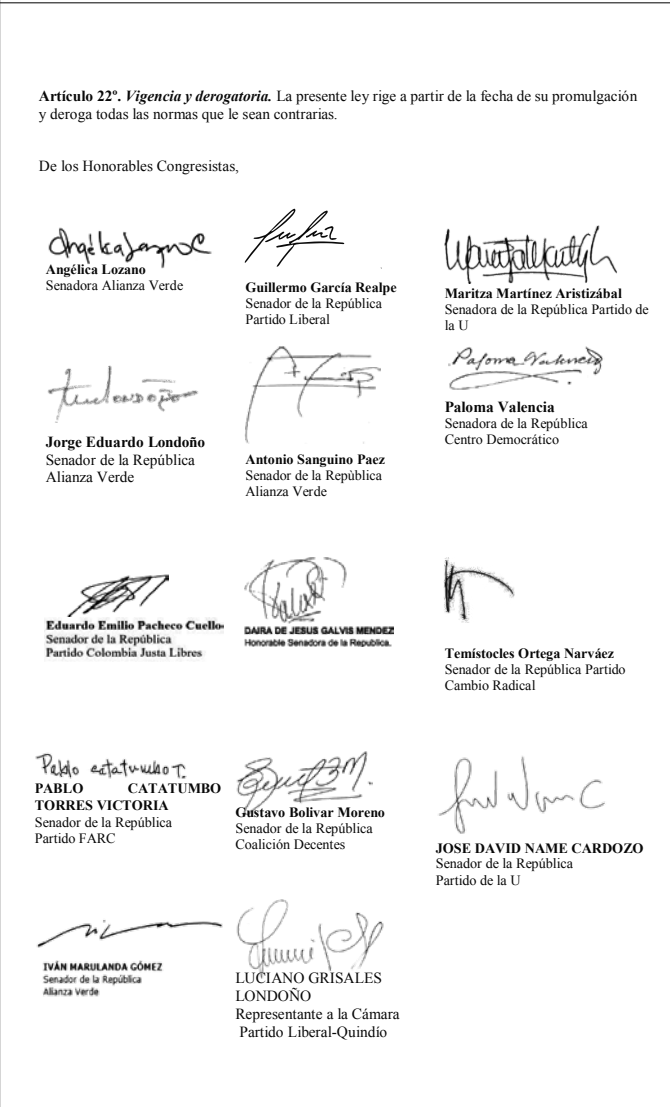 Artículo 22º. Vigencia y derogatoria. La presente ley rige a partir de la fecha de su promulgación
y deroga todas las normas que le sean contrarias.
De los Honorables Congresistas,
Angélica Lozano C
Angélica Lozano
Senadora Alianza Verde
Guillermo García Realpe
Senador de la República
Partido Liberal
Maritza Martínez Aristizábal
Senadora de la República Partido de
la U
Jorge Eduardo Londoño
Senador de la República
Alianza Verde
Antonio Sanguino Paez
Senador de la Repùblica
Alianza Verde
Paloma Valencia
Paloma Valencia
Senadora de la República
Centro Democrático
Eduardo Emilio Pacheco Cuello
Senador de la República
Partido Colombia Justa Libres
DAIRA DE JESUS GALVIS MENDEZ
Honorable Senadora de la Republica.
Temístocles Ortega Narváez
Senador de la República Partido
Cambio Radical
Pablo Catatumbo T.
PABLO CATATUMBO
TORRES VICTORIA
Senador de la República
Partido FARC
Gustavo Bolivar Moreno
Senador de la República
Coalición Decentes
JOSE DAVID NAME CARDOZO
Senador de la República
Partido de la U
IVÁN MARULANDA GÓMEZ
Senador de la República
Alianza Verde
LUCIANO GRISALES
LONDOÑO
Representante a la Cámara
Partido Liberal-Quindío